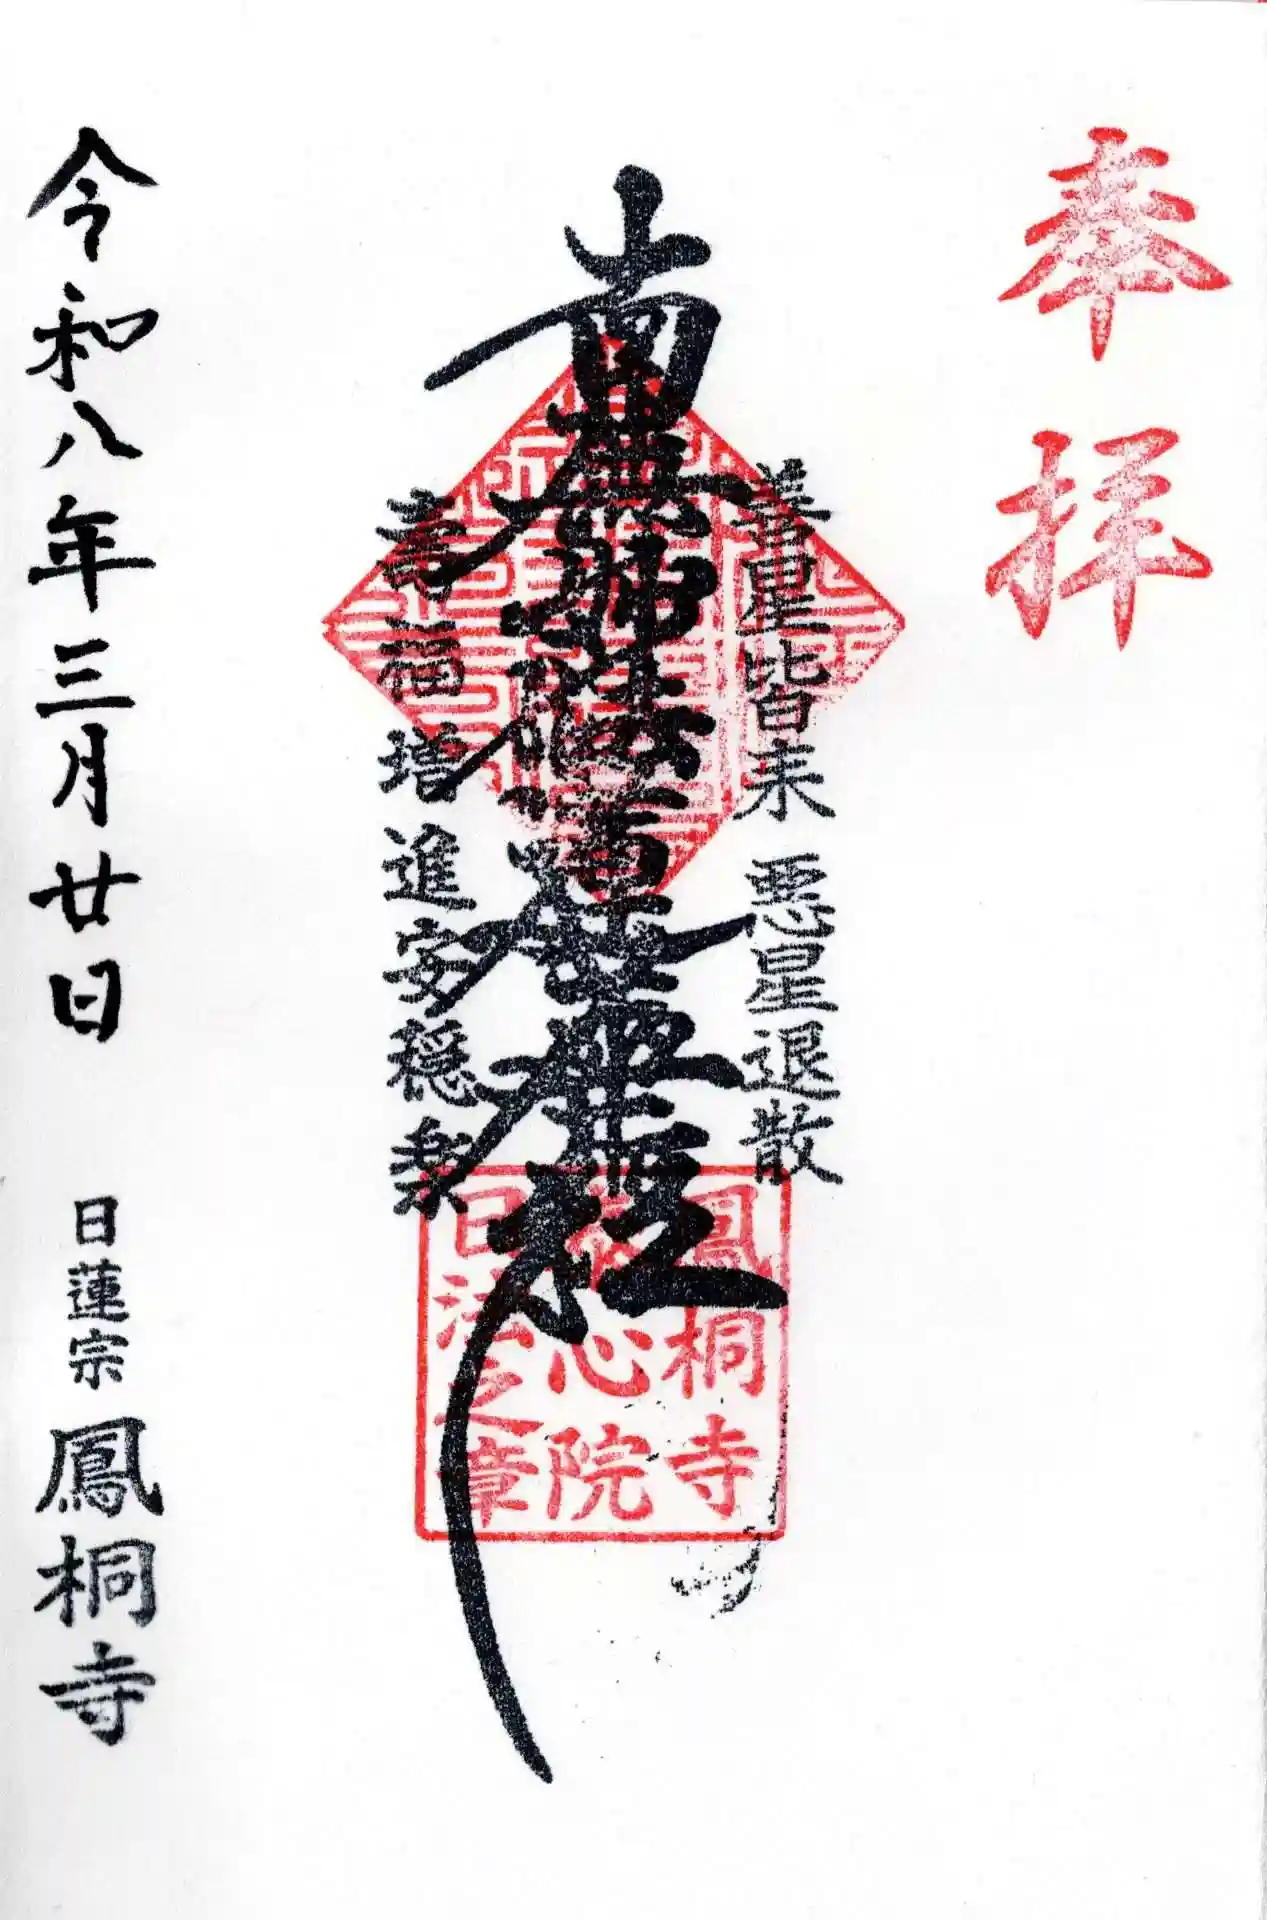 奉拝
善星皆来 悪星退散
南無妙法蓮華経
寿福増進安穏楽
鳳桐寺
心院
日法之章
令和八年三月廿日 日蓮宗 鳳桐寺